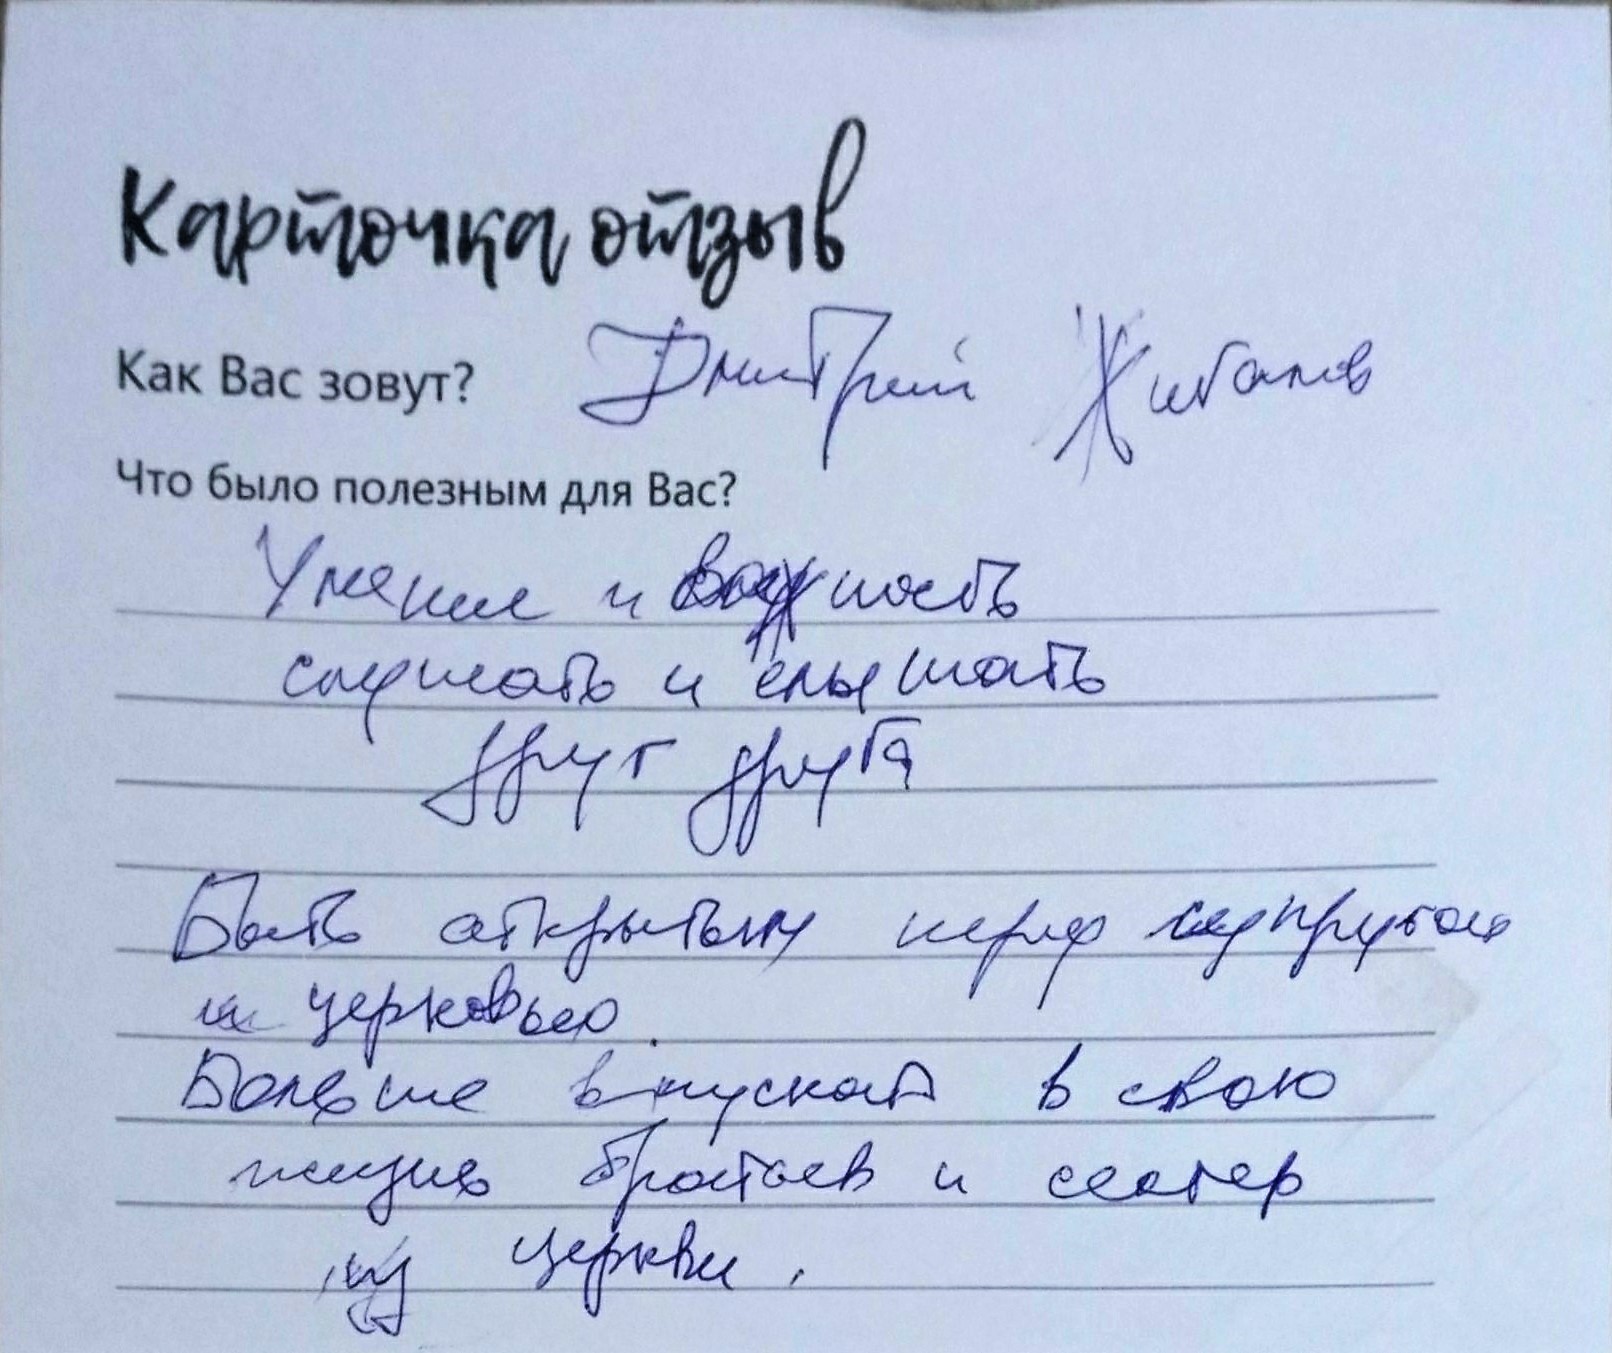 Карточка отзыв
Как Вас зовут? Дмитрий
Что было полезным для Вас?
Умение и важность
слушать и слышать
друг друга
Быть открытым перед супругой
и церковью.
Больше впускать в свою
жизнь братьев и сестер
из церкви.